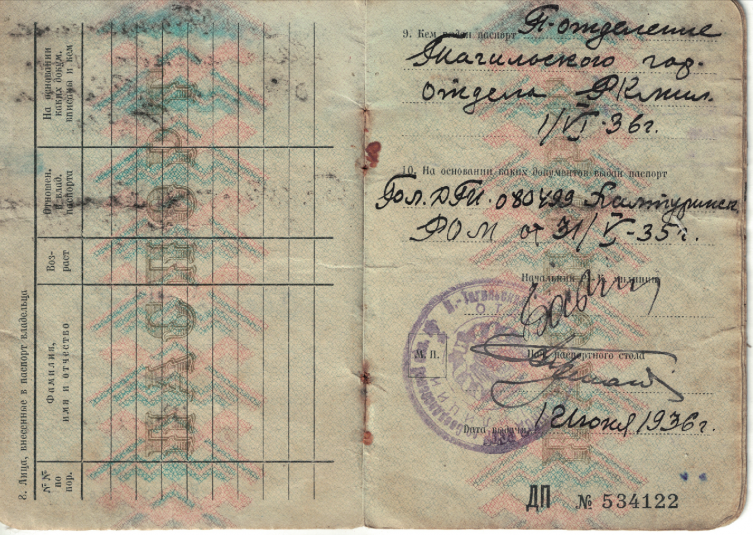 8. Лица, внесенные в паспорт владельца
№№
по
пор.
Фамилия,
имя и отчество
Воз-
раст
Отношен.
к влад.
паспорта
На основании
каких докум.
внесены и кем
ПАСПОРТ
9. Кем выдан паспорт П-отделение
Тагильского гор.
отдела РКМил.
1/VI-36г.
10. На основании каких документов выдан паспорт
080499
РОМ от 31/V-35г.
Начальник милиции
М. П.
Нач. паспортного стола
Дата выдачи 1 Июня 1936 г.
ДП № 534122